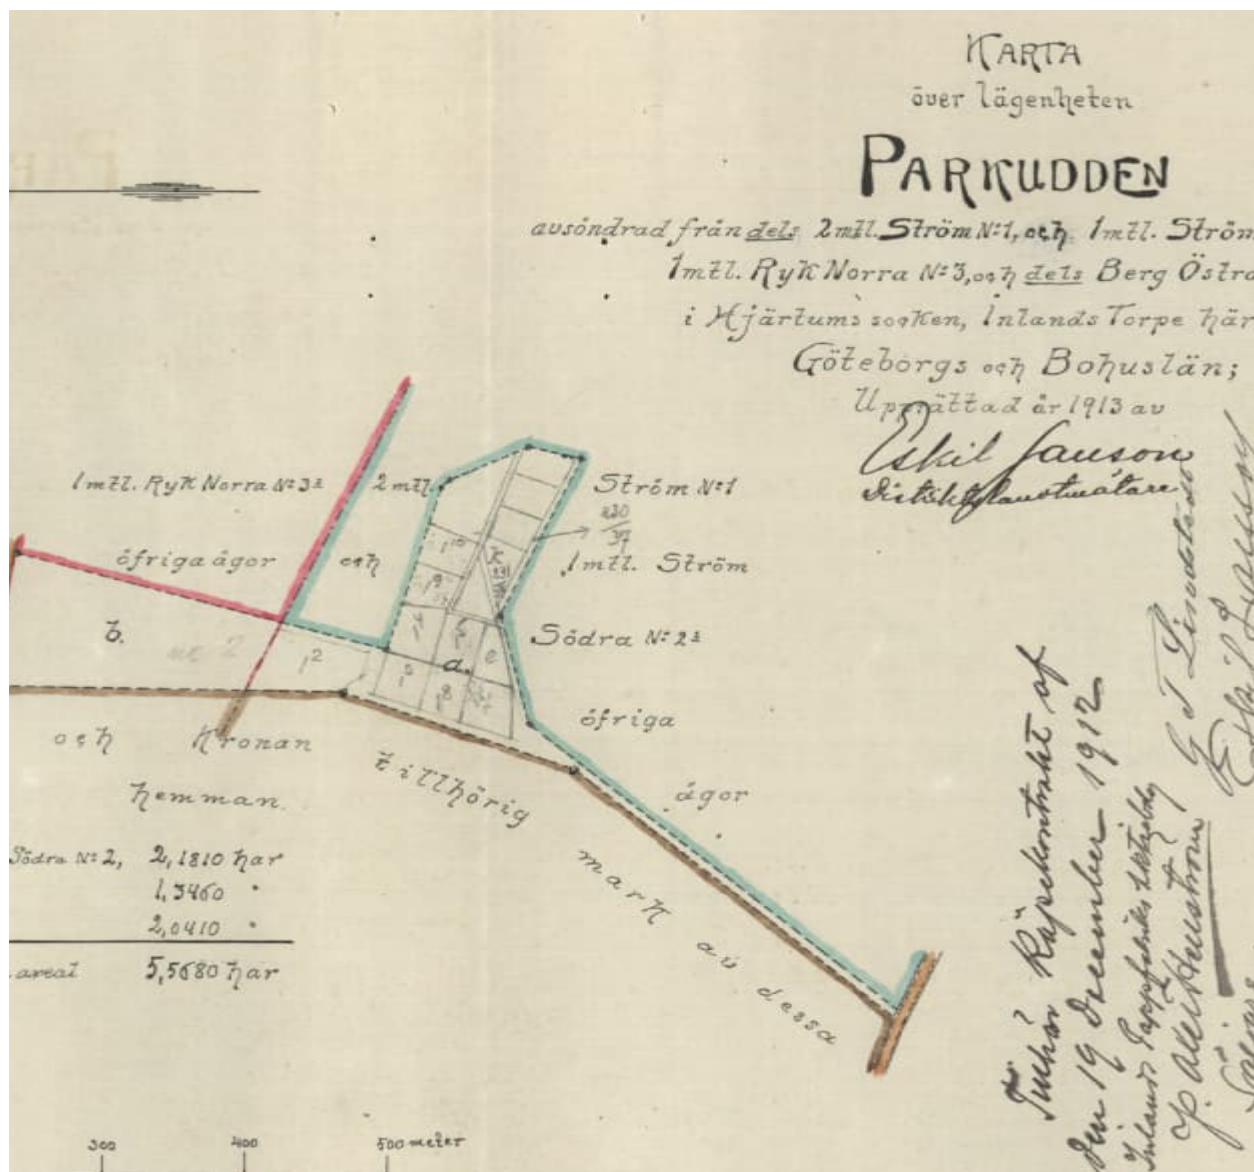 KARTA
över lägenheten
PARKUDDEN
avsöndrad från dels 2 mtl. Ström Nº 1, och 1 mtl. Ström
1 mtl. Ryk Norra Nº 3, och dels Berg Östra
i Hjärtums socken, Inlands Torpe här
Göteborgs och Bohuslän;
Upprättad år 1913 av
Eskil Janson
Distriktslantmätare
1 mtl. Ryk Norra Nº 3
2 mtl.
Ström Nº 1
230
37
öfriga ägor
och
1 mtl. Ström
1¹⁰
k
231
1⁹
b.
Södra Nº 2
1²
a.
e
och Kronan
tillhörig
öfriga
ägor
hemman.
mark av dessa
Södra Nº 2, 2,1810 har
1,3460 "
2,0410 "
areal 5,5680 har
300 400 500 meter
Tillhör Köpekontrakt af
den 19 december 1912
G T Lindstedt
Eskil Janson